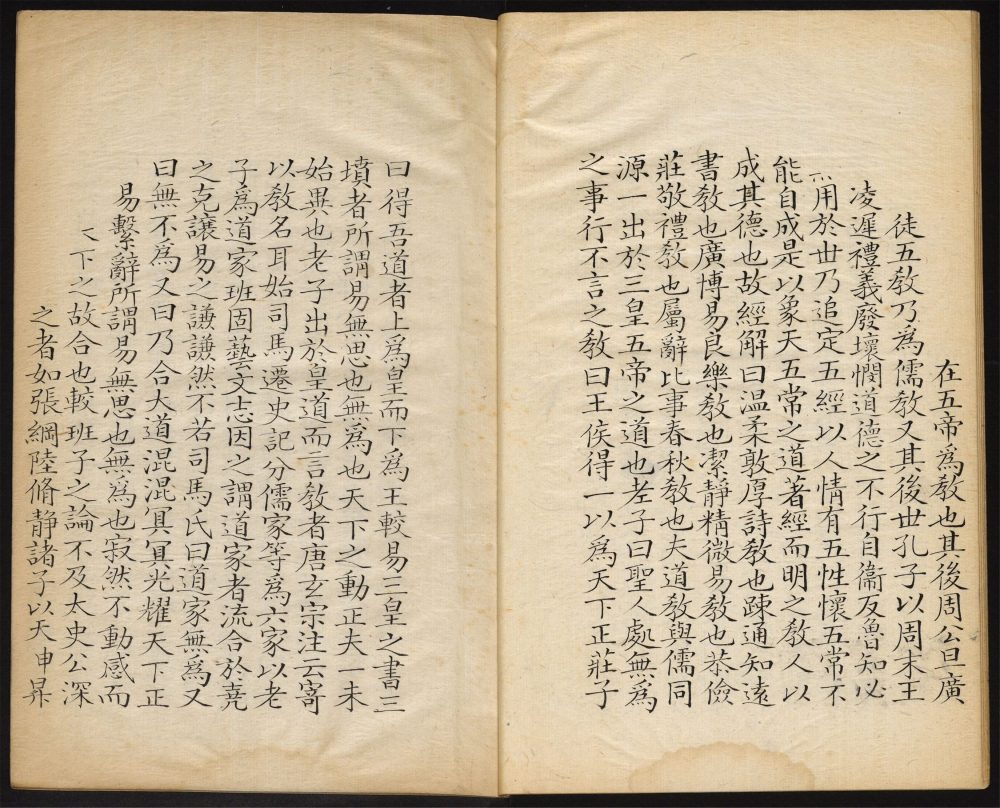 在五帝為教也其後周公旦廣
徒五教乃為儒教又其後世孔子以周末王
凌遲禮義廢壞憫道德之不行自衞反魯知必
不用於世乃追定五經以人情有五性懷五常不
能自成是以象天五常之道著經而明之教人以
成其德也故經解曰温柔敦厚詩教也踈通知遠
書教也廣博易良樂教也潔静精微易教也恭儉
莊敬禮教也屬辭比事春秋教也夫道教與儒同
源一出於三皇五帝之道也老子曰聖人處無為
之事行不言之教曰王侯得一以為天下正莊子
曰得吾道者上爲皇而下爲王較易三皇之書三
墳者所謂易無思也無爲也天下之動正夫一未
始異也老子出於皇道而言教者唐玄宗注云寄
以教名耳始司馬遷史記分儒家等爲六家以老
子爲道家班固藝文志因之謂道家者流合於堯
之克讓易之謙謙然不若司馬氏曰道家無爲又
曰無不爲又曰乃合大道混混冥冥光耀天下正
易繫辭所謂易無思也無為也寂然不動感而
下之故合也較班子之論不及太史公深
之者如張綱陸脩静諸子以天申昇